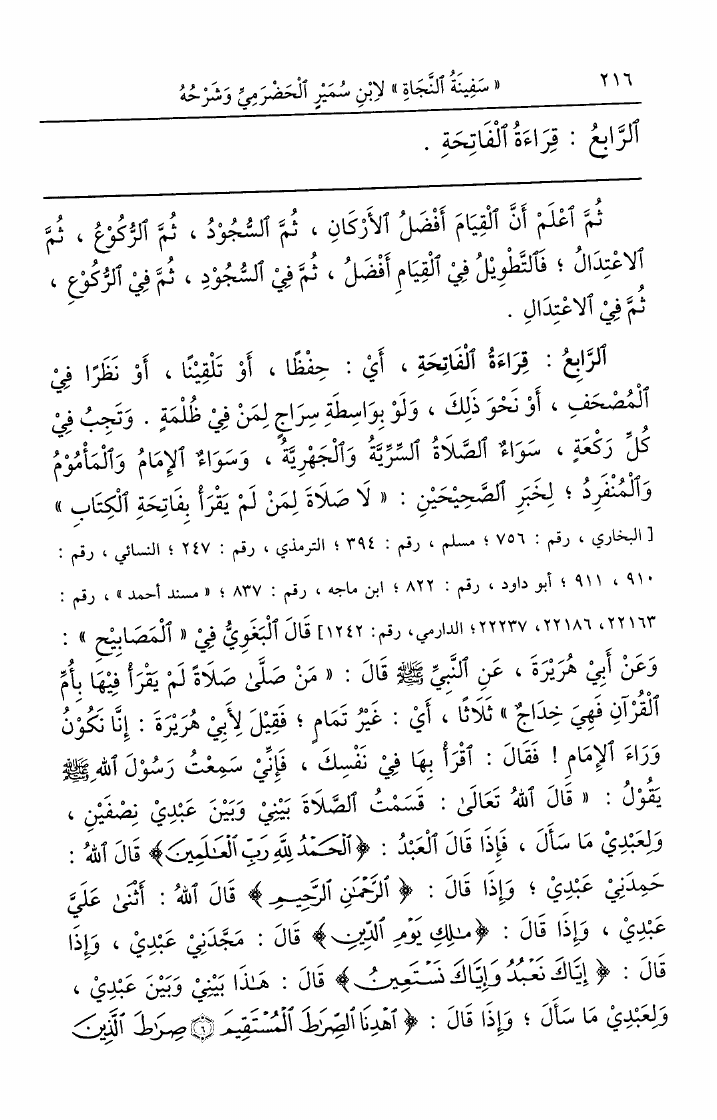 ٢١٦
« سَفِينَةُ ٱلنَّجَاةِ » لِابْنِ سُمَيْرٍ ٱلْحَضْرَمِيِّ وَشَرْحُهُ
ٱلرَّابِعُ : قِرَاءَةُ ٱلْفَاتِحَةِ .
ثُمَّ ٱعْلَمْ أَنَّ ٱلْقِيَامَ أَفْضَلُ ٱلأَرْكَانِ ، ثُمَّ ٱلسُّجُوْدُ ، ثُمَّ ٱلرُّكُوْعُ ، ثُمَّ
ٱلاعْتِدَالُ ؛ فَٱلتَّطْوِيْلُ فِيْ ٱلْقِيَامِ أَفْضَلُ ، ثُمَّ فِيْ ٱلسُّجُوْدِ ، ثُمَّ فِيْ ٱلرُّكُوْعِ ،
ثُمَّ فِيْ ٱلاعْتِدَالِ .
ٱلرَّابِعُ : قِرَاءَةُ ٱلْفَاتِحَةِ ، أَيْ : حِفْظًا ، أَوْ تَلْقِيْنًا ، أَوْ نَظَرًا فِيْ
ٱلْمُصْحَفِ ، أَوْ نَحْوَ ذَلِكَ ، وَلَوْ بِوَاسِطَةِ سِرَاجٍ لِمَنْ فِيْ ظُلْمَةٍ . وَتَجِبُ فِيْ
كُلِّ رَكْعَةٍ ، سَوَاءٌ ٱلصَّلَاةُ ٱلسِّرِّيَّةُ وَٱلْجَهْرِيَّةُ ، وَسَوَاءٌ ٱلإِمَامُ وَٱلْمَأْمُوْمُ
وَٱلْمُنْفَرِدُ ؛ لِخَبَرِ ٱلصَّحِيْحَيْنِ : « لَا صَلَاةَ لِمَنْ لَمْ يَقْرَأْ بِفَاتِحَةِ ٱلْكِتَابِ »
[ البخاري ، رقم : ٧٥٦ ؛ مسلم ، رقم : ٣٩٤ ؛ الترمذي ، رقم : ٢٤٧ ؛ النسائي ، رقم :
٩١٠ ، ٩١١ ؛ أبو داود ، رقم : ٨٢٢ ؛ ابن ماجه ، رقم : ٨٣٧ ؛ « مسند أحمد » ، رقم :
٢٢١٦٣، ٢٢١٨٦، ٢٢٢٣٧؛ الدارمي، رقم: ١٢٤٢] قَالَ ٱلْبَغَوِيُّ فِيْ « ٱلْمَصَابِيْحِ » :
وَعَنْ أَبِيْ هُرَيْرَةَ ، عَنِ ٱلنَّبِيِّ ﷺ قَالَ : « مَنْ صَلَّىٰ صَلَاةً لَمْ يَقْرَأْ فِيْهَا بِأُمِّ
ٱلْقُرْآنِ فَهِيَ خِدَاجٌ » ثَلَاثًا ، أَيْ : غَيْرُ تَمَامٍ ؛ فَقِيْلَ لِأَبِيْ هُرَيْرَةَ : إِنَّا نَكُوْنُ
وَرَاءَ ٱلإِمَامِ ! فَقَالَ : ٱقْرَأْ بِهَا فِيْ نَفْسِكَ ، فَإِنِّيْ سَمِعْتُ رَسُوْلَ ٱللهِ ﷺ
يَقُوْلُ : « قَالَ ٱللهُ تَعَالَىٰ : قَسَمْتُ ٱلصَّلَاةَ بَيْنِيْ وَبَيْنَ عَبْدِيْ نِصْفَيْنِ ،
وَلِعَبْدِيْ مَا سَأَلَ ، فَإِذَا قَالَ ٱلْعَبْدُ : ﴿ ٱلْحَمْدُ لِلَّهِ رَبِّ ٱلْعَٰلَمِينَ ﴾ قَالَ ٱللهُ :
حَمِدَنِيْ عَبْدِيْ ؛ وَإِذَا قَالَ : ﴿ ٱلرَّحْمَٰنِ ٱلرَّحِيمِ ﴾ قَالَ ٱللهُ : أَثْنَىٰ عَلَيَّ
عَبْدِيْ ، وَإِذَا قَالَ : ﴿ مَٰلِكِ يَوْمِ ٱلدِّينِ ﴾ قَالَ : مَجَّدَنِيْ عَبْدِيْ ، وَإِذَا
قَالَ : ﴿ إِيَّاكَ نَعْبُدُ وَإِيَّاكَ نَسْتَعِينُ ﴾ قَالَ : هَـٰذَا بَيْنِيْ وَبَيْنَ عَبْدِيْ ،
وَلِعَبْدِيْ مَا سَأَلَ ؛ وَإِذَا قَالَ : ﴿ ٱهْدِنَا ٱلصِّرَٰطَ ٱلْمُسْتَقِيمَ ۝٦ صِرَٰطَ ٱلَّذِينَ